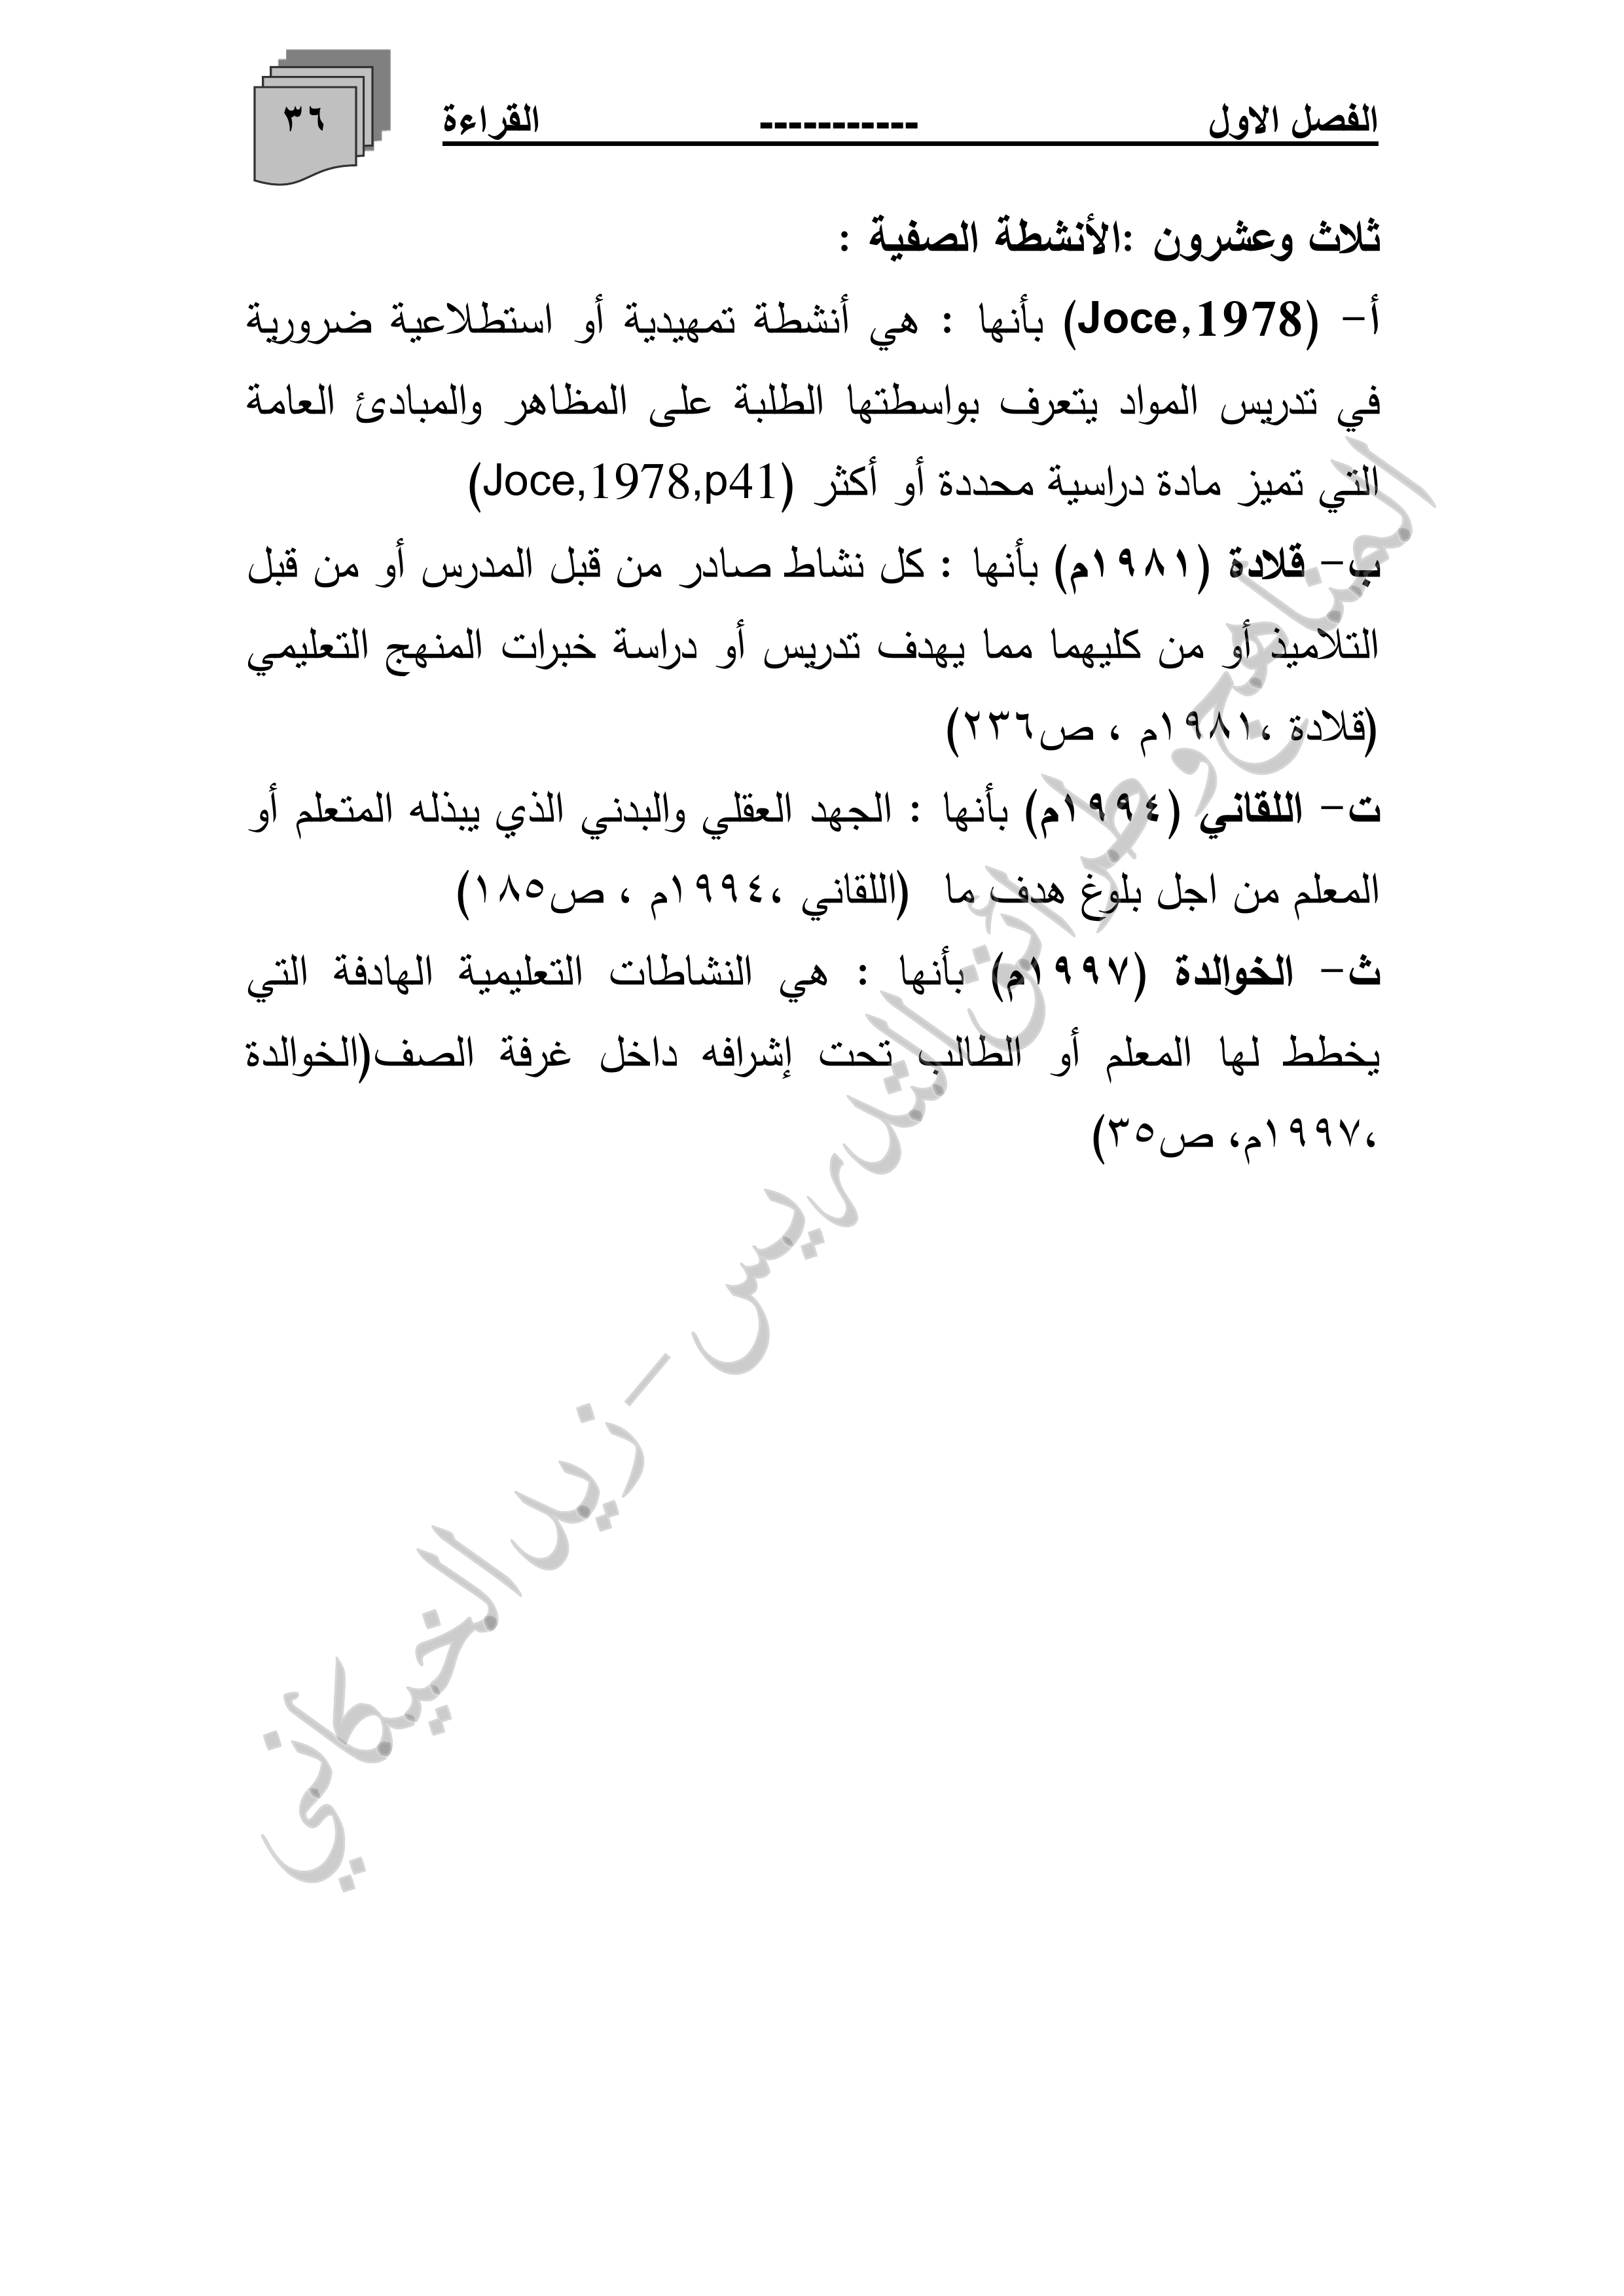 الفصل الاول ----------- القراءة
٣٦
ثلاث وعشرون :الأنشطة الصفية :
أ- (Joce,1978) بأنها : هي أنشطة تمهيدية أو استطلاعية ضرورية
في تدريس المواد يتعرف بواسطتها الطلبة على المظاهر والمبادئ العامة
التي تميز مادة دراسية محددة أو أكثر (Joce,1978,p41)
ب- قلادة (١٩٨١م) بأنها : كل نشاط صادر من قبل المدرس أو من قبل
التلاميذ أو من كليهما مما يهدف تدريس أو دراسة خبرات المنهج التعليمي
(قلادة ،١٩٨١م ، ص٢٣٦)
ت- اللقاني (١٩٩٤م) بأنها : الجهد العقلي والبدني الذي يبذله المتعلم أو
المعلم من اجل بلوغ هدف ما (اللقاني ،١٩٩٤م ، ص١٨٥)
ث- الخوالدة (١٩٩٧م) بأنها : هي النشاطات التعليمية الهادفة التي
يخطط لها المعلم أو الطالب تحت إشرافه داخل غرفة الصف(الخوالدة
،١٩٩٧م، ص٣٥)
المناهج وطرائق التدريس - زيد الخيكاني